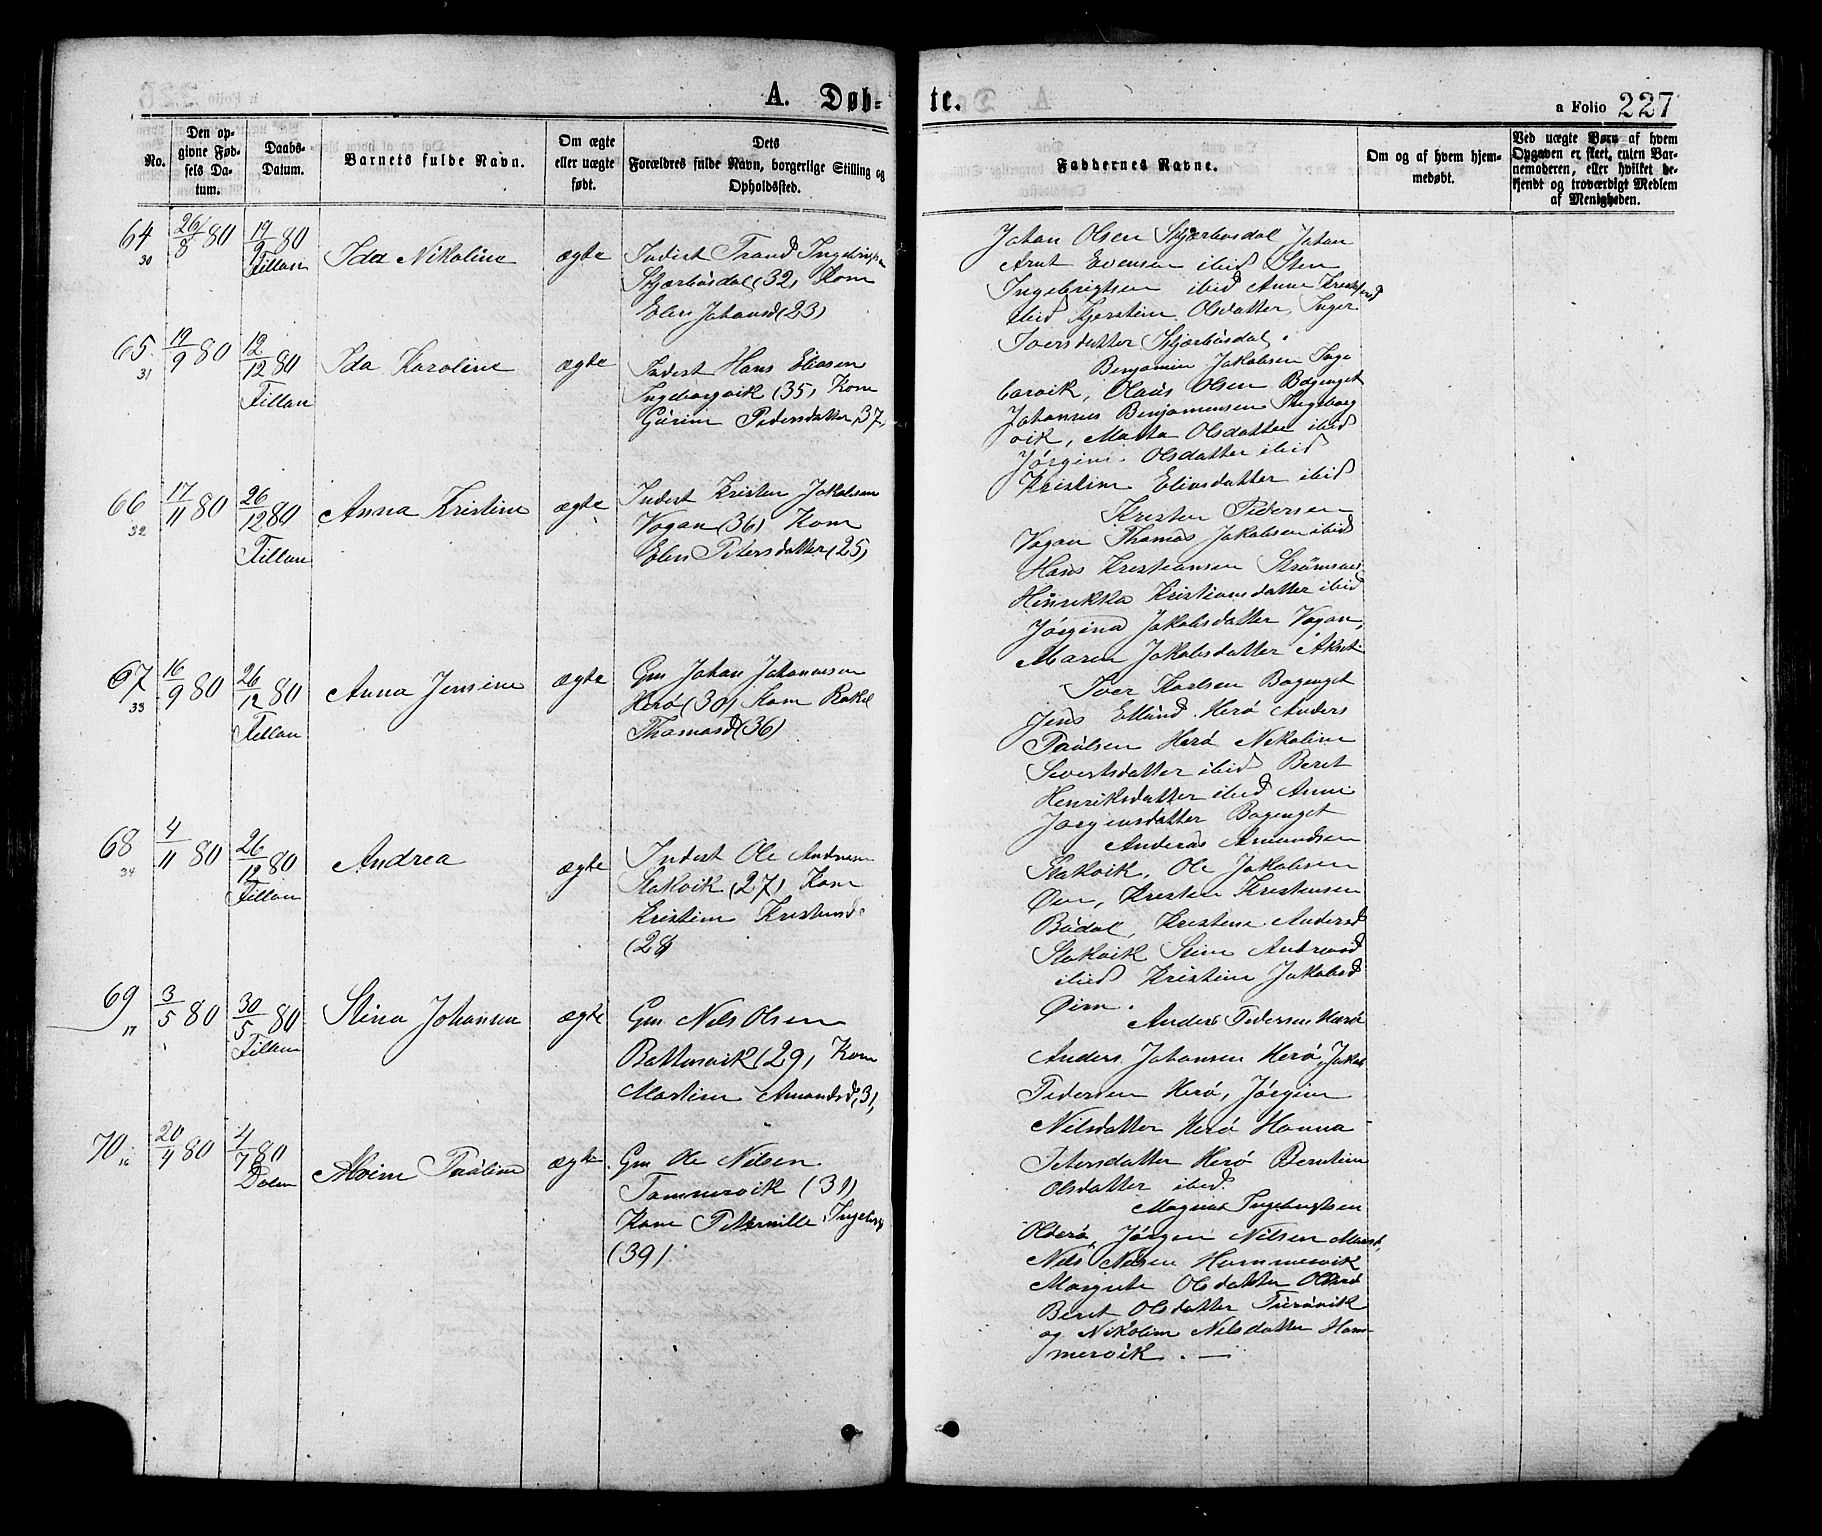 A. Døb-
te.
a Folio 227
No.
Den op-
givne Fød-
sels Da-
tum.
Daabs-
Datum.
Barnets fulde Navn.
Om ægte
eller uægte
født.
Dets
Forældres fulde Navn, borgerlige Stilling og
Opholdssted.
Faddernes Navne.
Om og af hvem hjem-
medøbt.
Ved uægte Børn af hvem
Opgaven er skeet, enten Bar-
nemoderen, eller hvilket be-
kjendt og troværdigt Medlem
af Menigheden.
64
30
26/9 80
19/9 80
Fillan
Ida Nikoline
ægte
Inderst Trond Ingebrigtsen
Skjærbusdal (32) Kone
Elen Johansd (23)
Johan Olsen Skjærbusdal Johan
Arnt Evensen ibid Sten
Ingebrigtsen ibid Anne
ibid Kjerstine Olsdatter, Inger
Iversdatter Skjærbusdal.
65
31
19/9 80
12/12 80
Fillan
Ida Karoline
ægte
Inderst Hans Eliasen
Ingeborgvik (35) Kone
Gurine Pedersdatter 37,
Benjamin Jakobsen Inge
borvik, Claus Olsen Bogenget
Johannes Benjamensen Ingeborg
vik, Marta Olsdatter ibid
Jørgine Olsdatter ibid
Kristine Eliasdatter ibid
66
32
17/11 80
26/12 80
Fillan
Anna Kristine
ægte
Inderst Kristen Jakobsen
Vogan (36) Kone
Elen Petersdatter (25)
Kristen Pedersen
Vogan Thomas Jakobsen ibid
Hans Kristiansen Strømsnes
Henrikka Kristiansdatter ibid
Jørgina Jakobsdatter Vogan,
Maren Jakobsdatter Akset
67
33
16/9 80
26/12 80
Fillan
Anna Jensine
ægte
Gm Johan Johannesen
Herø (30) Kone Rakel
Thomasd (36)
Iver Karlsen Bogenget
Jens Edlund Herø Anders
Paulsen Herø Nikoline
Sivertsdatter ibid Beret
Henriksdatter ibid Anne
Jørgensdatter Bogenget
68
34
4/11 80
26/12 80
Fillan
Andrea
ægte
Inderst Ole Andresen
Slakvik (27) Kone
Kristine Kristensd.
(28
Anderas Amundsen
Slakvik, Ole Jakobsen
Øien, Kristen Kristensen
Budal, Kristine Andersd
Slakvik Stine Andreasd
ibid Kristine Jakobsd
Øien.
69
17
3/5 80
30/5 80
Fillan
Stina Johansen
ægte
Gm Nils Olsen
Battenvik (29) Kone
Martine Amundsd. 31,
Anders Pedersen Herø
Anders Johansen Herø, Jakob
Pedersen Herø, Jørgine
Nilsdatter Herø Hanna
Petersdatter Herø Berntine
Olsdatter ibid.
70
16
20/4 80
4/7 80
Dolm
Alvine Pauline
ægte
Gm Ole Nilsen
Tammervik (31)
Kone Petternille Ingebrigt
(39)
Magnus Ingebrigtsen
Olderø, Jørgen Nilsen
Nils Nilsen Hammervik
Margrete Olsdatter Olderø
Beret Olsdatter
og Nikoline Nilsdatter Ham-
mervik. —